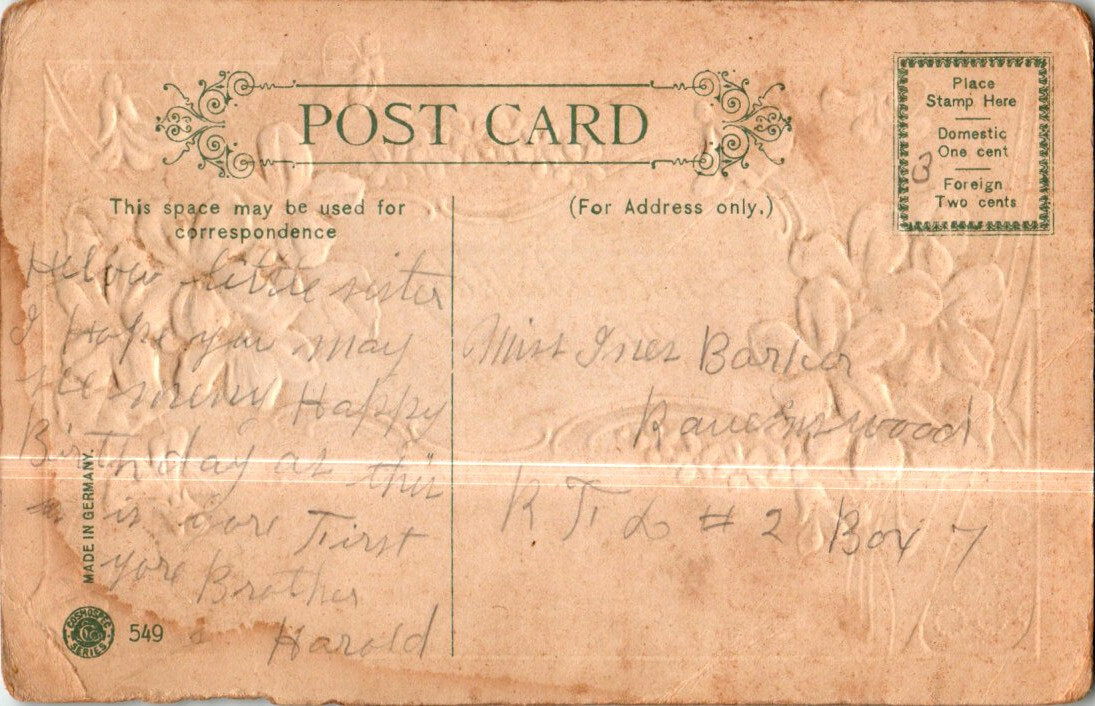 POST CARD
Place
Stamp Here
Domestic
One cent
3
Foreign
Two cents
This space may be used for
correspondence
(For Address only.)
Helow little sister
I Hope you may
see meny Happy
Birth day as this
is yore First
yore Brother
Harold
Miss Ines Barker
Ravenswood
R F D # 2 Box 7
MADE IN GERMANY.
COSMOSPEC
SERIES
549